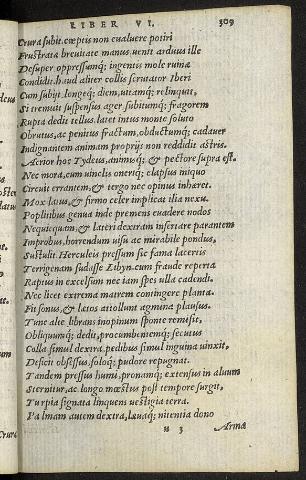 LIBER VI. 309
Crura subit. cœptis non eualuere potiri
Frustrata breuitate manus. uenit arduus ille
Desuper oppressumq; ingentis mole ruina
Condidit. haud aliter collis scrutator Iberi
Cum subijt, longeq; diem, uitamq; relinquit,
Si tremuit suspensus ager subitumq; fragorem
Rupta dedit tellus. latet intus monte soluto
Obrutus, ac penitus fractum, obductumq; cadauer
Indignantem animam proprijs non reddidit astris.
Acrior hoc Tydeus, animisq; & pectore supra est.
Nec mora, cum uinclis onerisq; elapsus iniquo
Circuit errantem, & tergo nec opinus inhæret.
Mox latus, & firmo celer implicat ilia nexu.
Poplitibus genua inde premens euadere nodos
Nequicquam, & lateri dextram insertare parantem
Improbus, horrendum uisu ac mirabile pondus,
Sustulit. Herculeis pressum sic fama lacertis
Terrigenam sudasse Libyn. cum fraude reperta
Raptus in excelsum nec iam spes ulla cadendi.
Nec licet extrema matrem contingere planta.
Fit sonus, & lætos attollunt agmina plausus.
Tunc alte librans inopinum sponte remisit,
Obliquumq; dedit, procumbentemq; secutus
Colla simul dextra, pedibus simul inguina uinxit,
Deficit obsessus, soloq; pudore repugnat.
Tandem pressus humi, pronamq; extensus in aluum
Sternitur, ac longo mœstus post tempore surgit,
Turpia signata linquens uestigia terra.
Palmam autem dextra, læuaq; nitentia dono
3 Arma